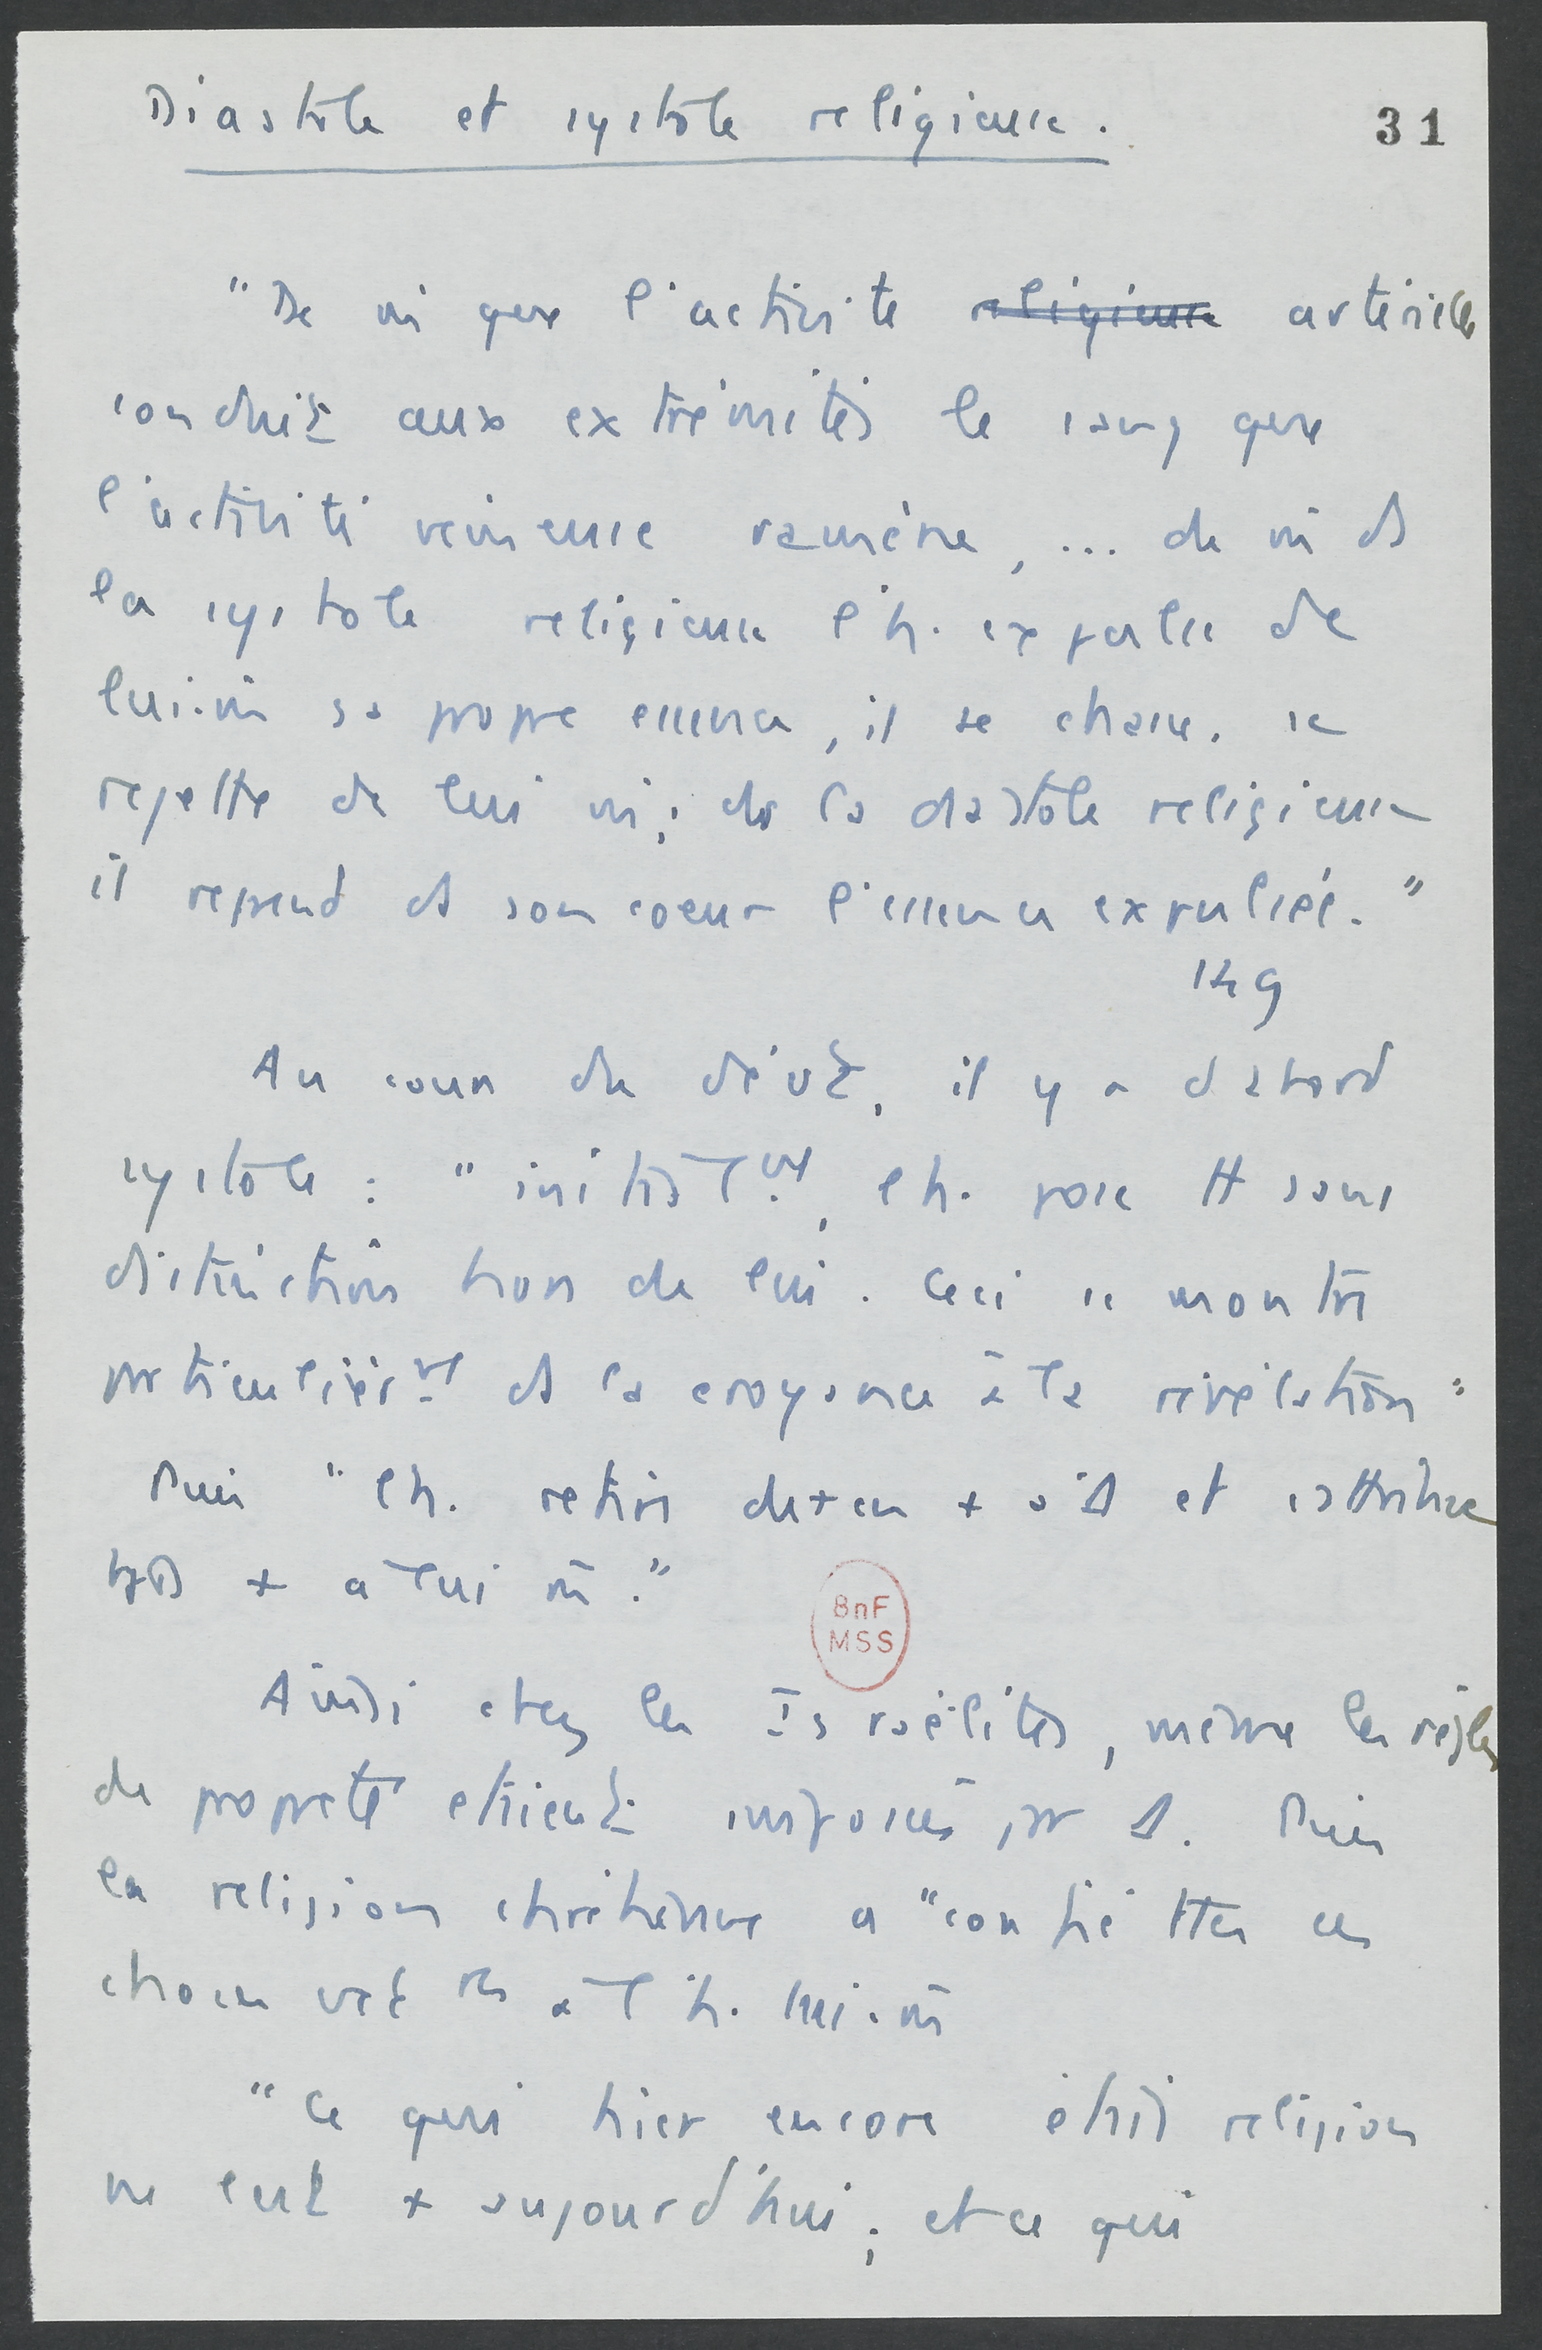 Diastole et systole religieuse.
31
"De m̂ que l'activité religieuse artérielle
conduit aux extrémités le sang que
l'activité veineuse ramène, ... de m̂ ds
la systole religieuse l'h. expulse de
lui-m̂ sa propre essence, il se chasse, se
rejette de lui m̂; ds la diastole religieuse
il reprend ds son coeur l'essence expulsée."
149
Au cours du dévt, il y a d'abord
systole : "initialt, l'h. pose tt sans
distinction hors de lui. Ceci se montre
particulièrmt ds la croyance à la révélation"
Puis "l'h. retire de + en + à D et s'attribue
tjs + à lui m̂."
BnF
MSS
Ainsi chez les Israélites, même les règles
de propreté étaient imposées par D. Puis
la religion chrétienne a "confié ttes ces
choses à l'h. lui-m̂
"Ce qui hier encore était religion
ne l'est + aujourd'hui; et ce qui